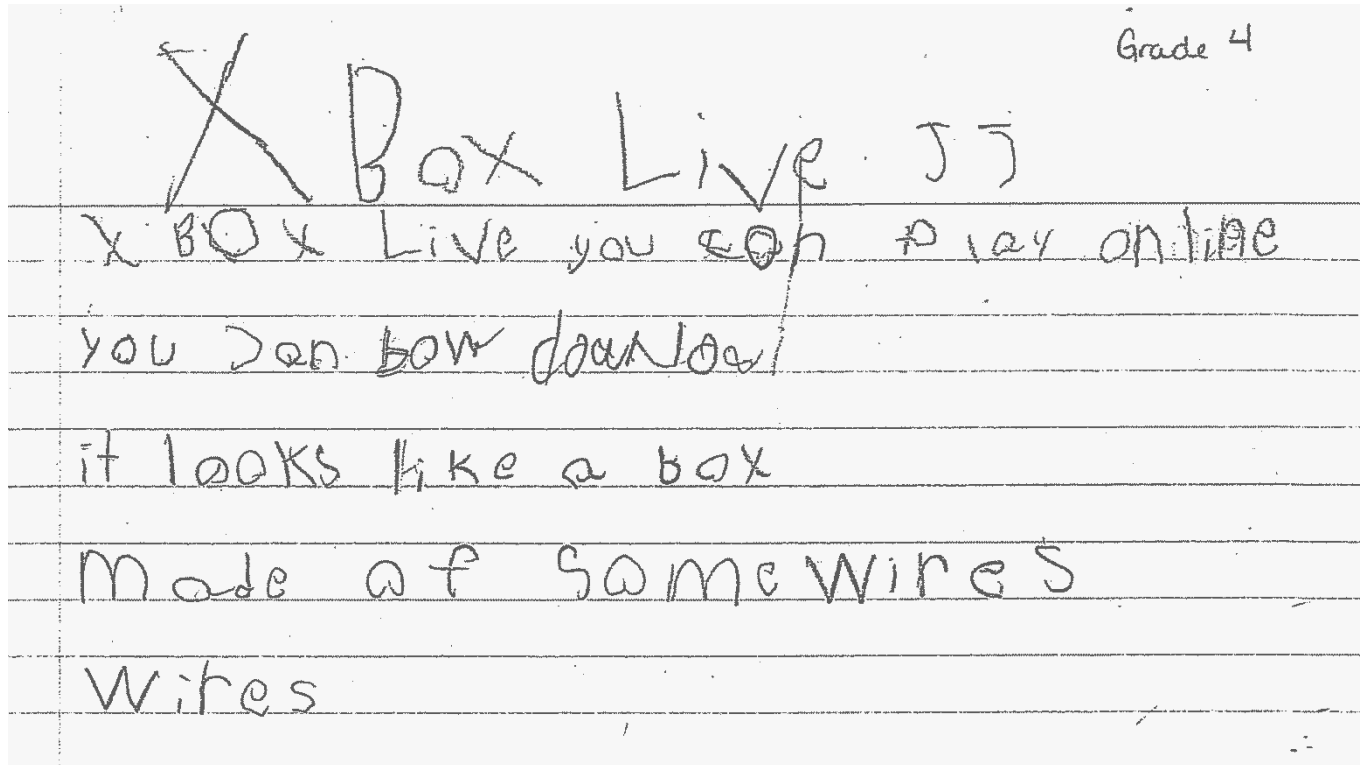 Grade 4
X Box Live JJ
X BOX Live you can Play online
you can bow downloa
it looks like a box
Made of some wires
wires